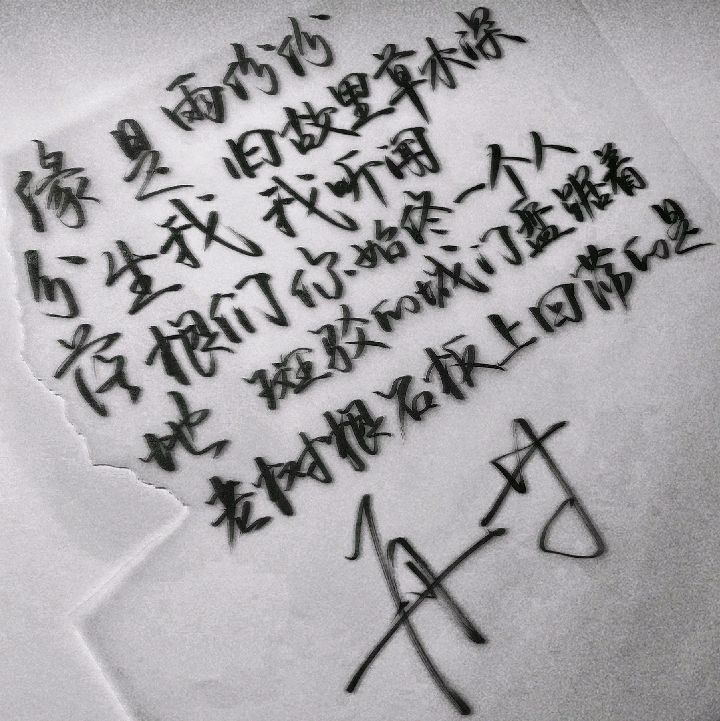 缘分落地
生根
是我们
雨纷纷
旧故里草木深
我听闻
你始终一个人
斑驳的城门盘踞着
老树根石板上回荡的是